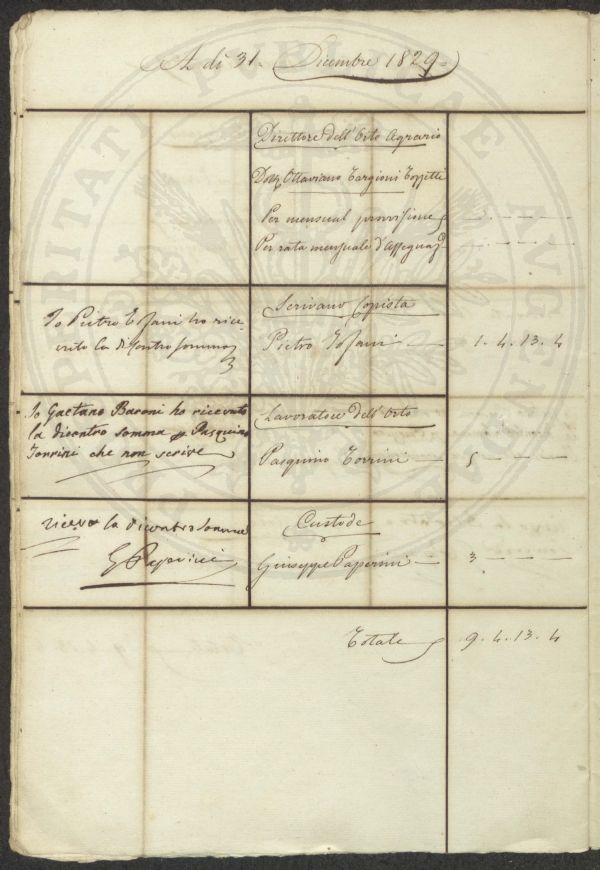 A dì 31. Dicembre 1829.
Direttore dell'Orto Agrario
Dott. Ottaviano Targioni Tozzetti
Per mensual provvisione — — — —
Per rata mensuale d'Assegnaz. — — — —
Io Pietro ho rice-
vuto la di contro somma
Scrivano Copista
Pietro — 1. 4. 13. 4
Io Gaetano Baroni ho ricevuto
la dicontro somma p Pasquino
Torrini che non scrive
Lavoratore dell'Orto
Pasquino Torrini — 5 — — —
ricevo la dicontro somma
G Paperini
Custode
Giuseppe Paperini — 3 — — —
Totale 9. 4. 13. 4
PIETATI PUBLICAE AUG